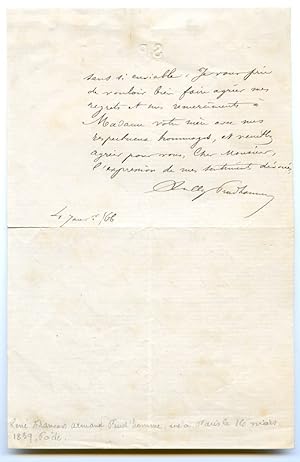 sens si enviable. Je vous prie
de vouloir bien faire agréer mes
regrets et mes remerciements à
Madame votre mère avec mes
respectueux hommages, et veuillez
agréer pour vous, Cher Monsieur,
l'expression de mes sentiments dévoués
Sully Prudhomme
4 Janv. /66
René François Armand Prud'homme, né à Paris le 16 mars
1839, Poète.